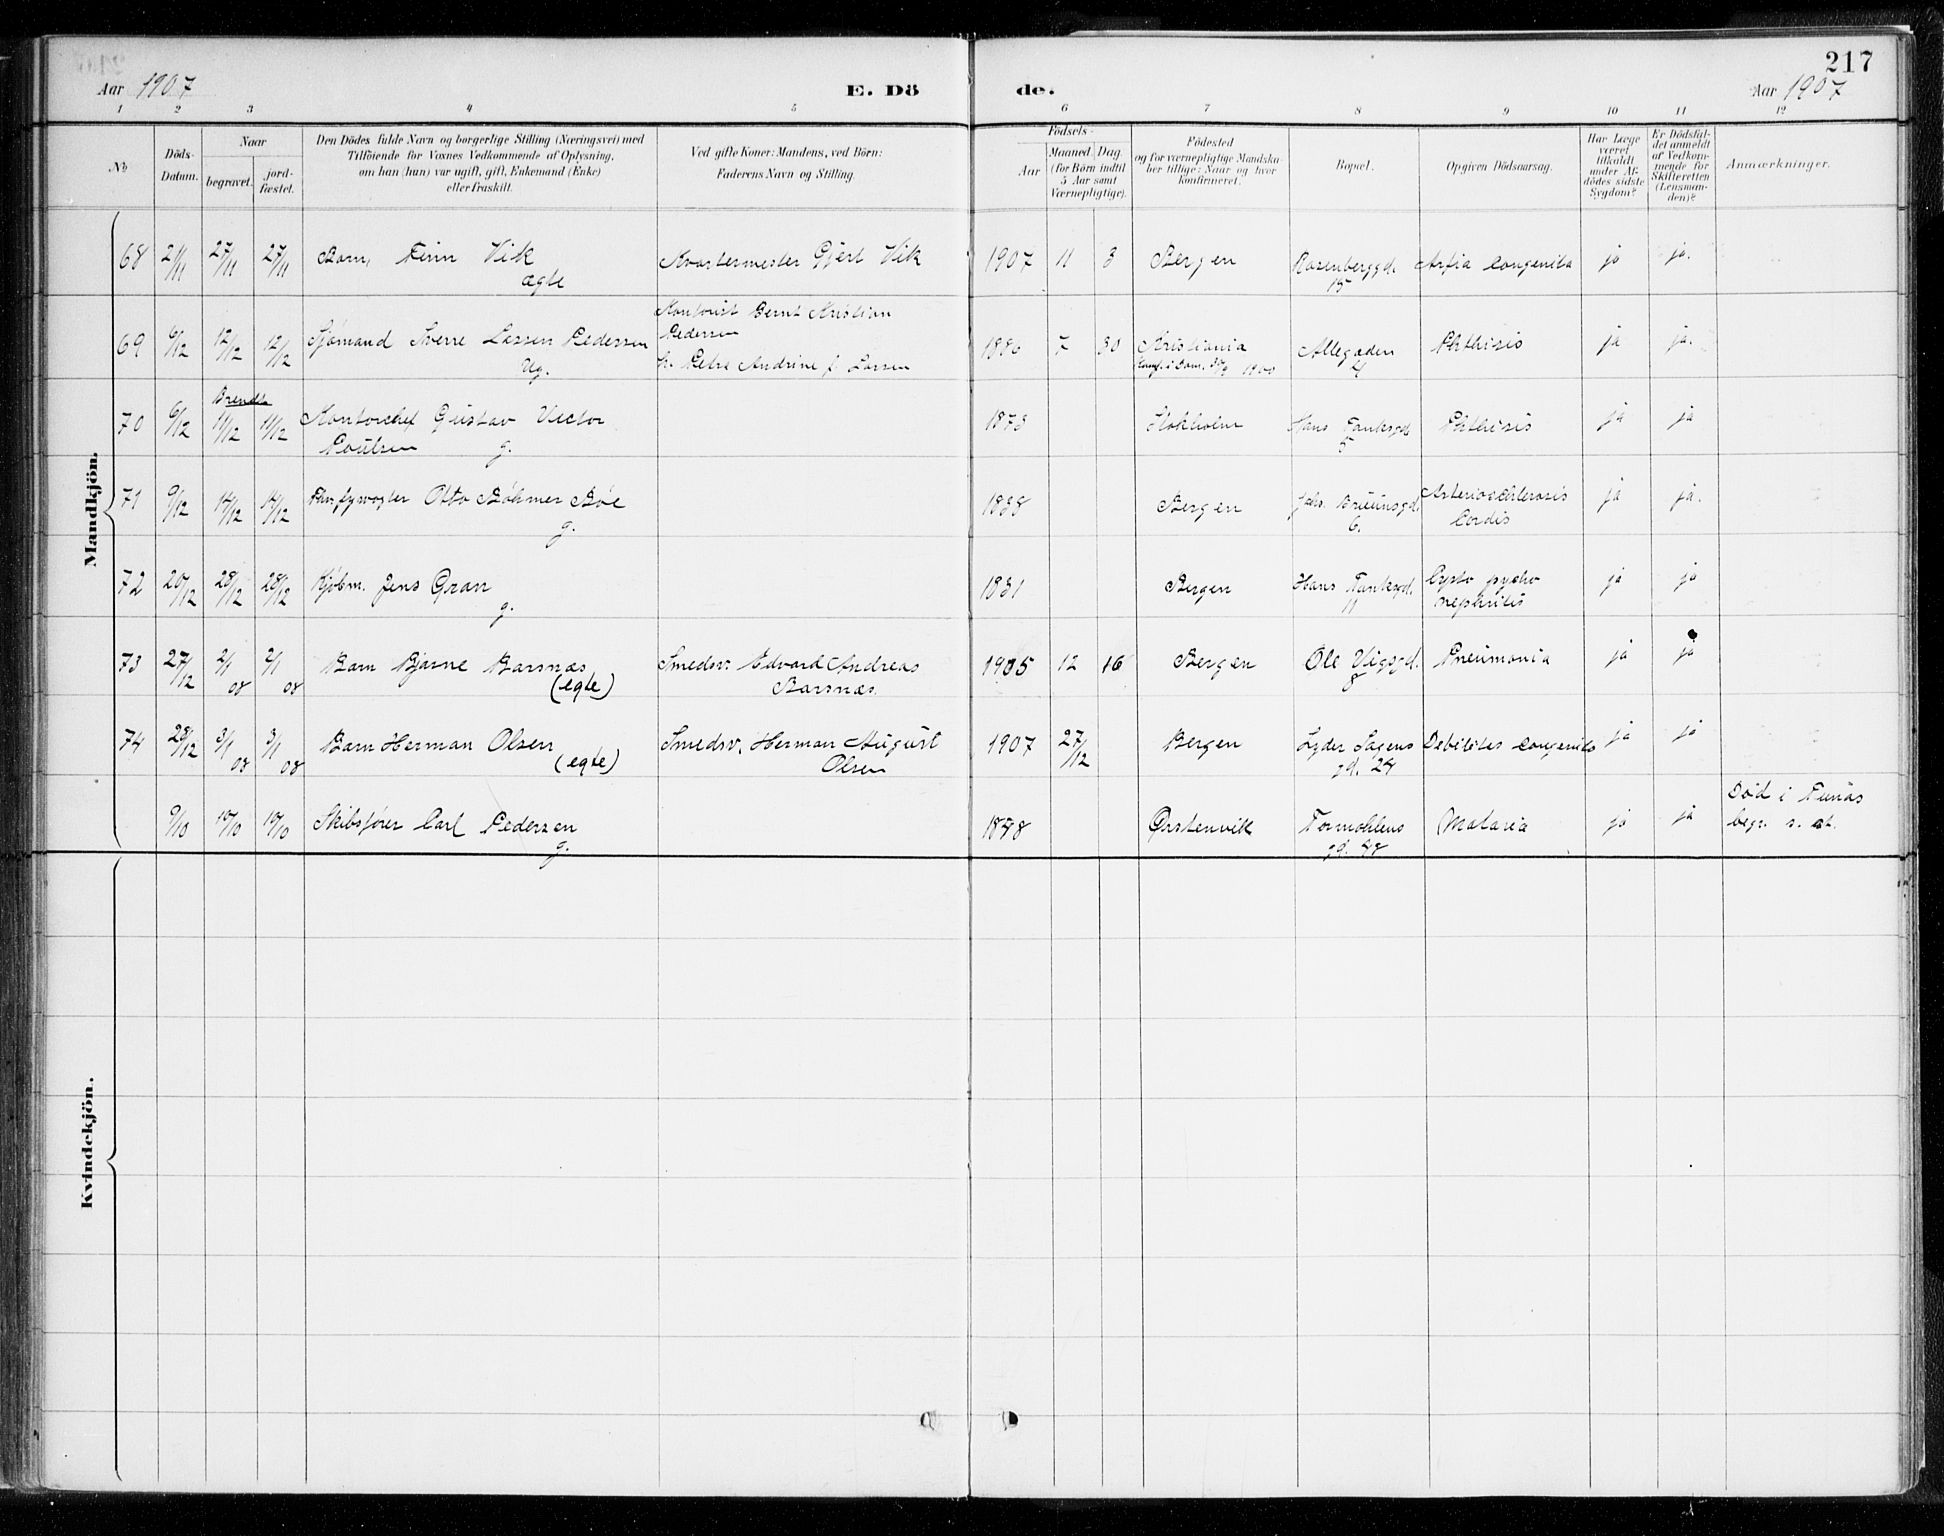 217
Aar 1907 E. Dö de. Aar 1907
1 2 3 4 5 6 7 8 9 10 11 12
No
Döds-
Datum.
Naar
begravet.
jord-
fæstet.
Den Dödes fulde Navn og borgerlige Stilling (Næringsvei) med
Tilföiende for Voxnes Vedkommende af Oplysning,
om han (hun) var ugift, gift, Enkemand (Enke)
eller fraskilt.
Ved gifte Koner: Mandens, ved Börn:
Faderens Navn og Stilling.
Födsels-
Aar
Maaned. Dag.
(for Börn indtil
5 Aar samt
Værnepligtige).
Födested
og for værnepligtige Mandska-
ber tillige: Naar og hvor
konfirmeret.
Bopæl.
Opgiven Dödsaarsag.
Har Læge
været
tilkaldt
under Af-
dödes sidste
Sygdom?
Er Dödsfal-
det anmeldt
af Vedkom-
mende for
Skifteretten
(Lensman-
den)?
Anmærkninger.
Mandkjön.
68 21/11 27/11 27/11 Barn, Finn Vik Kvartermester Gjert Vik 1907 11 3 Bergen Rosenberggd. Asfia Congenita ja ja.
ægte 15
Kontorist Bernt Kristian
69 6/12 12/12 12/12 Sjømand Sverre Larsen Pedersen Pedersen 1886 7 30 Kristiania Allegaden Phthisis ja ja.
Ug. h. Petra Andrine f. Larsen Konf. i Dom. 1900 4
Brendt
70 6/12 11/12 11/12 Kontorchef Gustav Victor 1873 Stokholm Hans Tanksgd Phthisis ja ja
Poulsen g. 5
71 9/12 14/12 14/12 Otto Böhmer Böe 1838 Bergen Joh. Bruunsgd. Arteriosclerosis ja ja.
g. 6. Cordis
72 20/12 28/12 28/12 Kjøbm. Jens Gran 1831 Bergen Hans Tanksgd. Cysto pycho ja ja
g. 11 nephritis
73 27/12 2/1 08 2/1 08 Barn Bjarne Barsnæs Smedsv. Edvard Andreas 1905 12 16 Bergen Ole Viigsgd. Pneumonia ja ja
(egte) Barsnæs. 8
74 28/12 3/1 08 3/1 08 Barn Herman Olsen Smedsv. Herman August 1907 27/12 Bergen Lyder Sagens Debilitas Congenita ja ja
(egte) Olsen gd. 24
9/10 10/10 10/10 Skibsfører Carl Pedersen 1848 Ørstenvik Formohlens Malaria ja ja Død i
g. gd. 48 begr. s. st.
Kvindekjön.